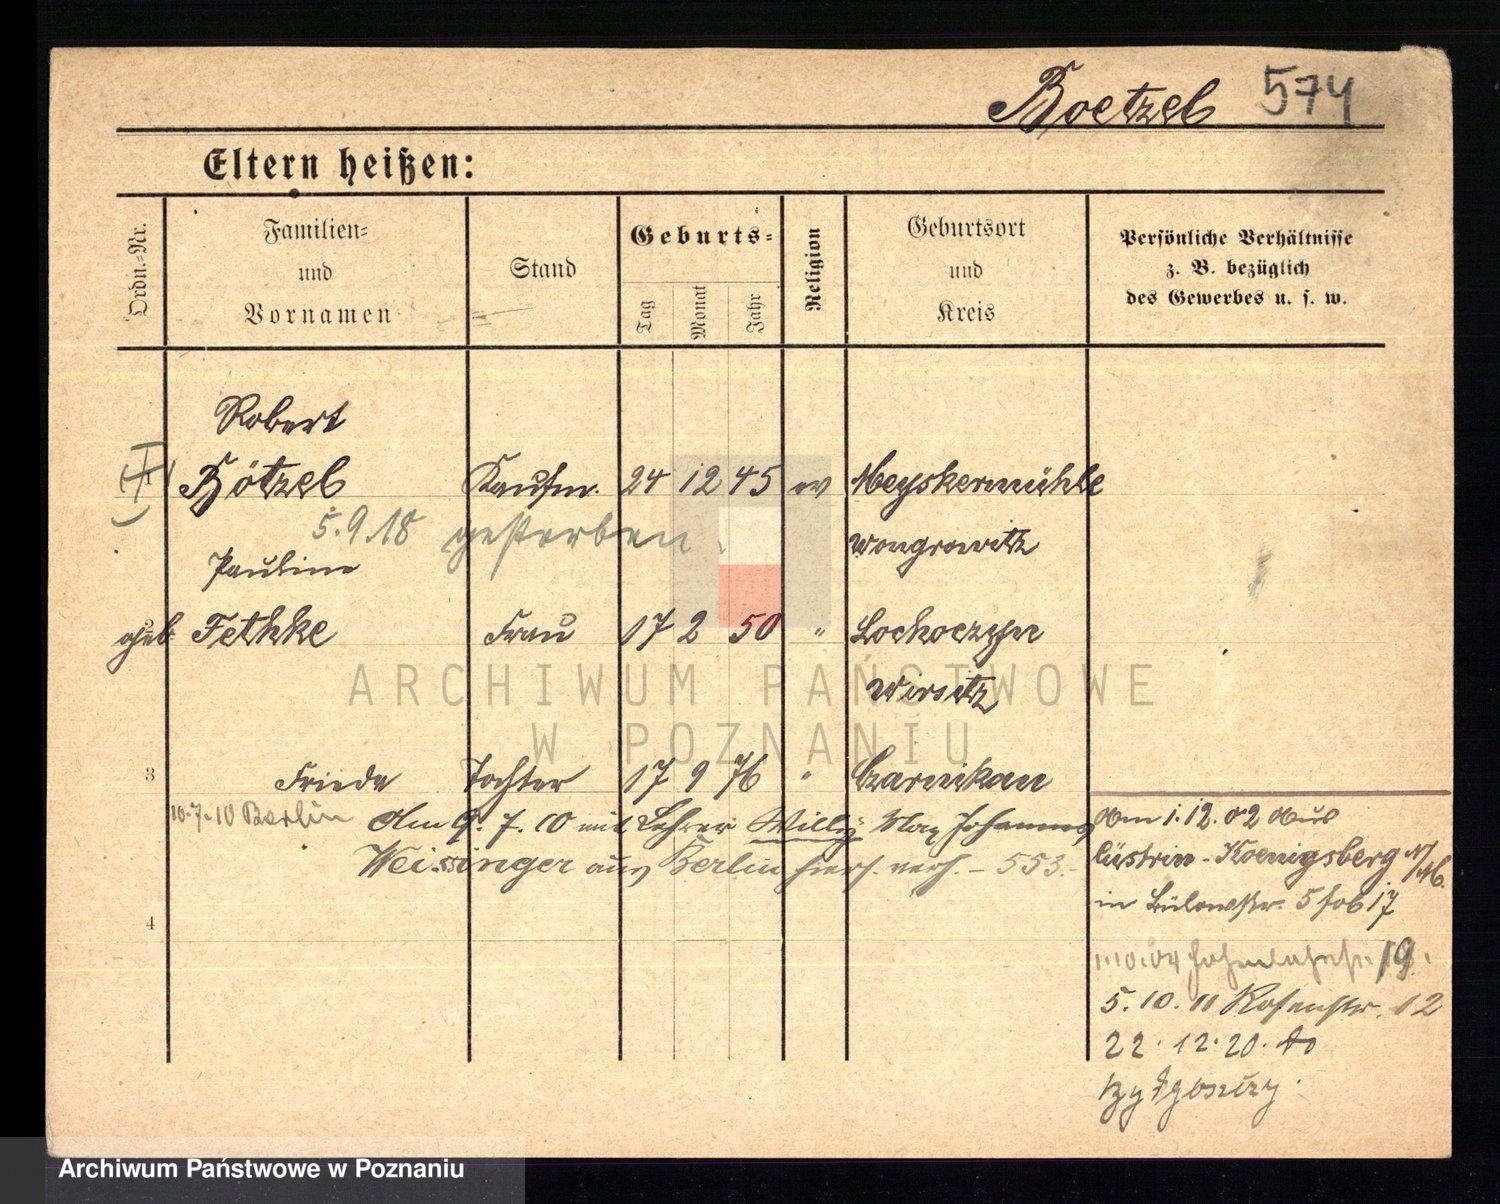 Boetzel 574
Eltern heißen:
Ordn.-Nr.
Familien-
und
Vornamen
Stand
Geburts-
Tag
Monat
Jahr
Religion
Geburtsort
und
Kreis
Persönliche Verhältnisse
z. B. bezüglich
des Gewerbes u. s. w.
Robert
Bötzel Kaufm. 24 12 45 ev Meyskermühle
5.9.18 gestorben. Wongrowitz
Pauline
geb. Fethke Frau 17 2 50 " Lochoczyn
Wirsitz
3 Frieda Tochter 17 9 76 " Czarnikau
10.7.10 Berlin
Am 9.7.10 mit Lehrer Willy Max Johannes
Weissinger aus Berlin hiers. verh. - 553.-
4
Am 1.12.02 aus
Cüstrin - Koenigsberg N/M.
in Bülowstr. 5
1.10.04 19.
5.10.11 Rosenstr. 12
22.12.20.
Bydgoszcz.
ARCHIWUM PAŃSTWOWE
W POZNANIU
Archiwum Państwowe w Poznaniu